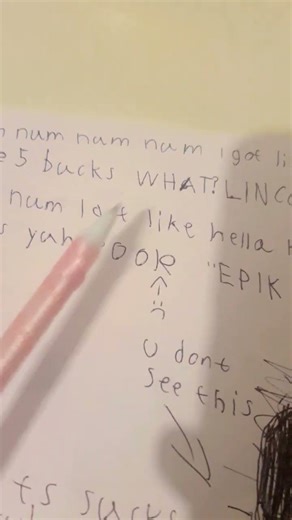 num num num I got li
e 5 bucks WHAT? LINC
num I got like hella
s yah OOK "EPIK
^
:(
u dont
see this
ts sucks